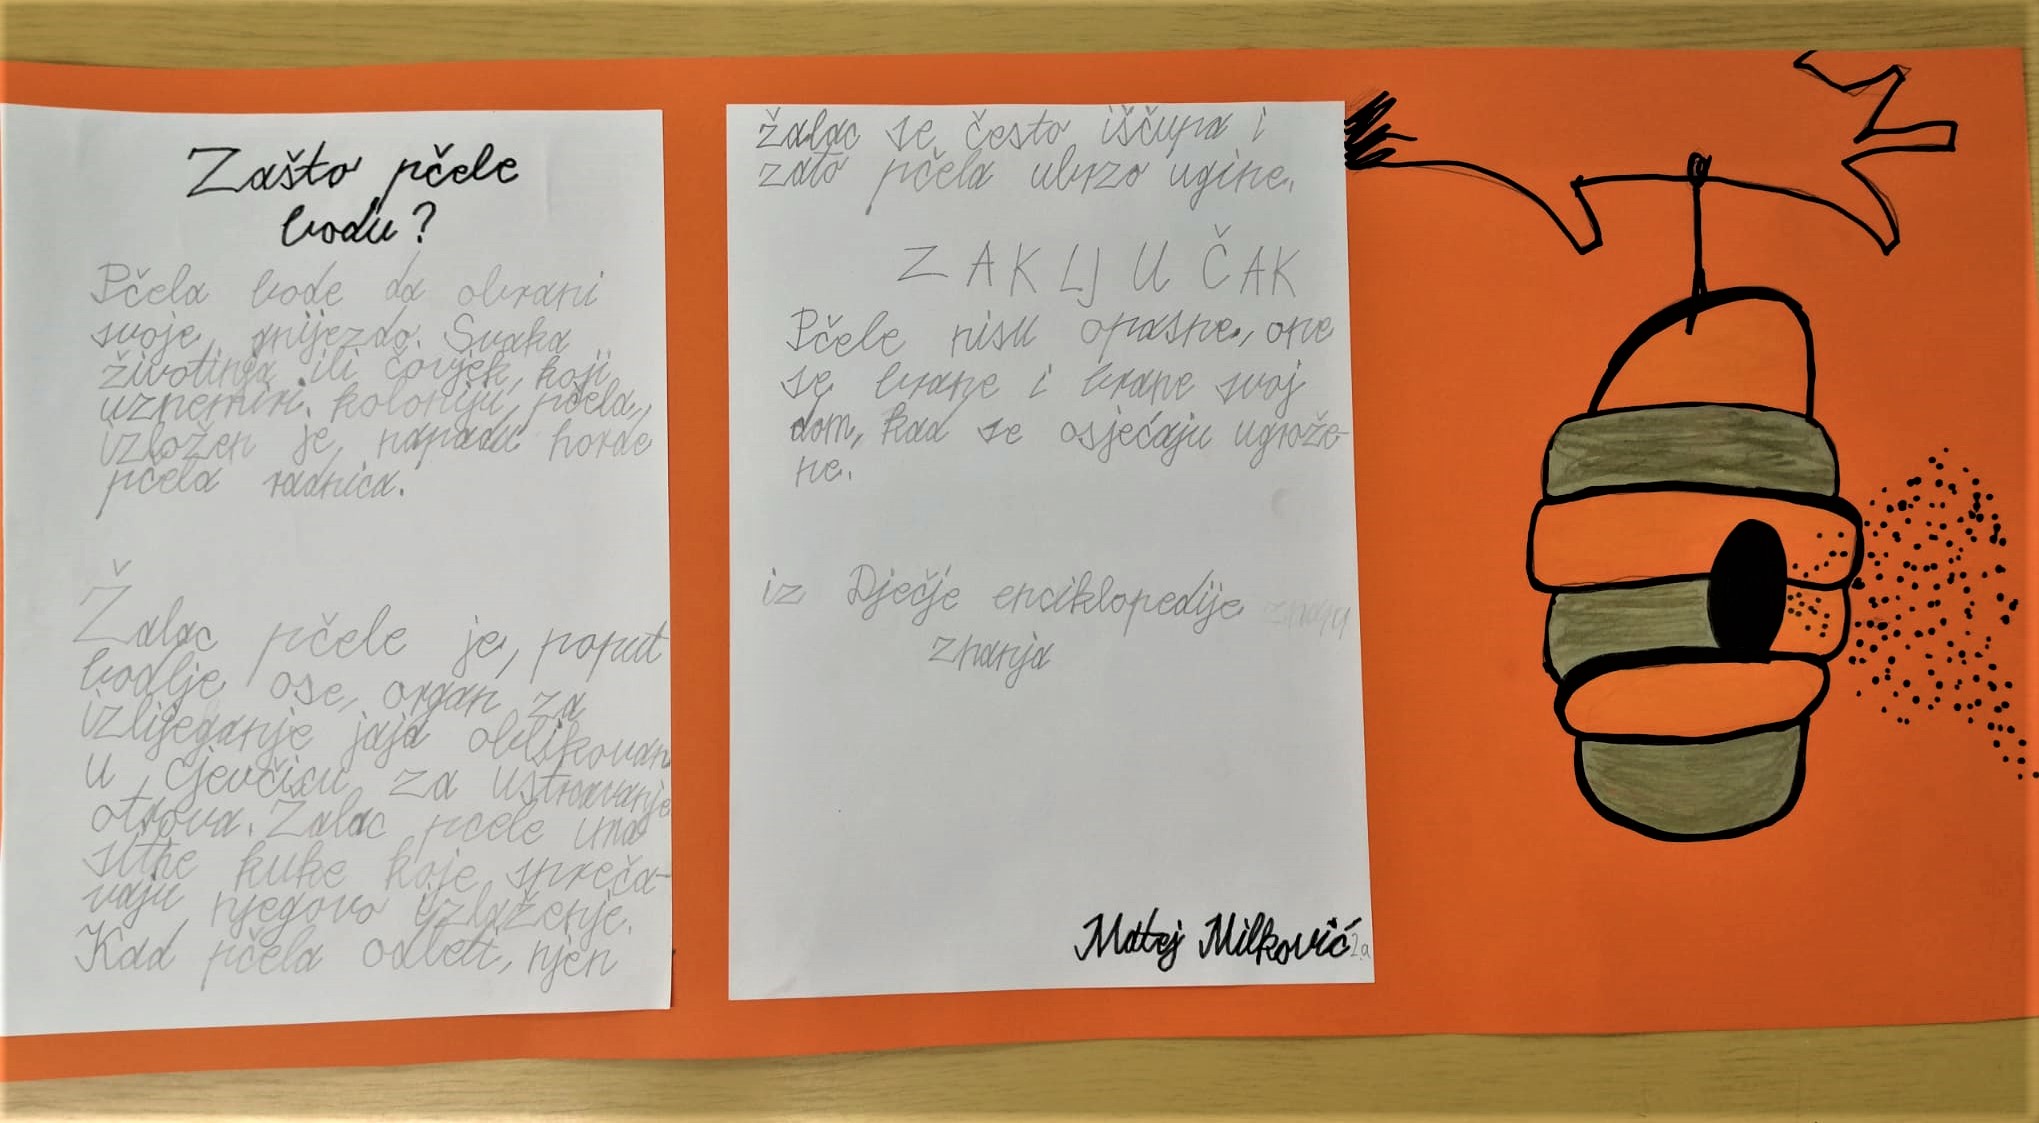 Zašto pčele
bodu?
Pčela bode da obrani
svoje gnijezdo. Svaka
životinja ili čovjek, koji
uznemiri koloniju pčela,
izložen je napadu horde
pčela radnica.
Žalac pčele je, poput
bodlje ose, organ za
izlijeganje jaja oblikovan
u cjevčicu za ustrcavanje
otrova. Žalac pčele ima
sitne kuke koje spreča-
vaju njegovo izlaženje.
Kad pčela odleti, njen
žalac se često iščupa i
zato pčela ubrzo ugine.
ZAKLJUČAK
Pčele nisu opasne, one
se brane i brane svoj
dom, kad se osjećaju ugrože-
ne.
iz Dječje enciklopedije
znanja
Matej Milković 2.a